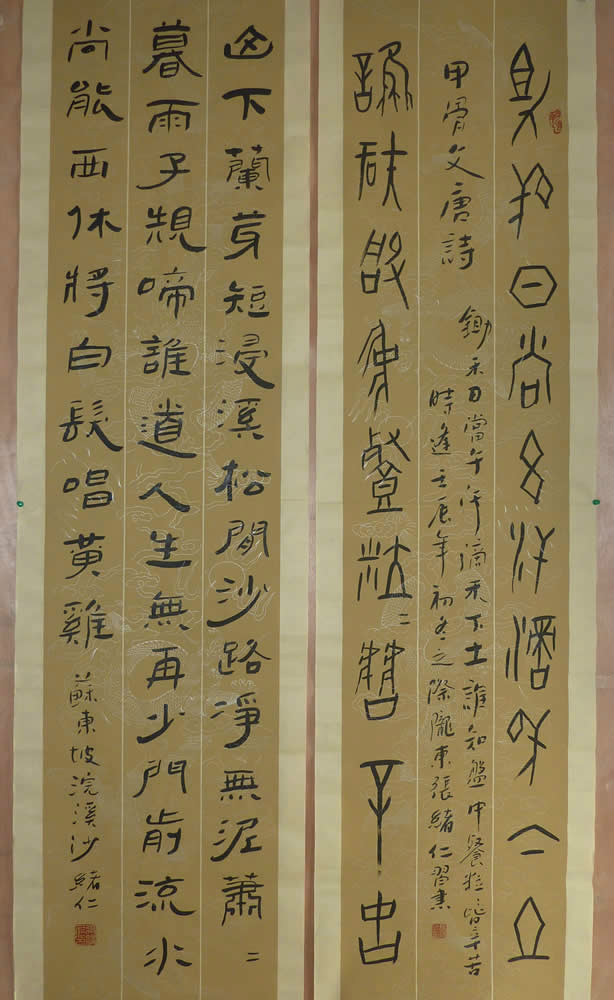 鋤禾日當午汗滴禾下土
甲骨文唐詩
鋤禾日當午汗滴禾下土誰知盤中餐粒〻皆辛苦
時逢壬辰年初冬之際隴東張緒仁習書
誰知盤中餐粒〻皆辛苦
山下蘭芽短浸溪松間沙路淨無泥蕭〻
暮雨子規啼誰道人生無再少門前流水
尚能西休將白髮唱黃雞 蘇東坡浣溪沙 緒仁